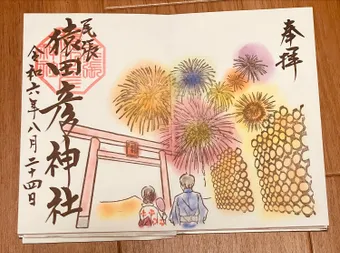 奉拝
尾張
猿田彦神社
令和六年八月二十四日